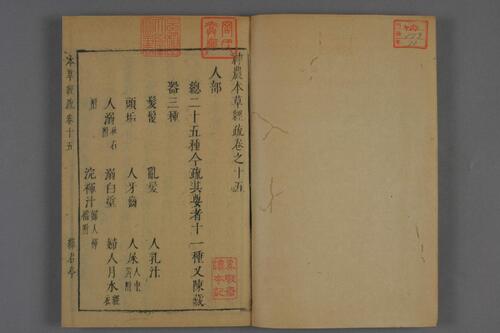 神農本草經疏卷之十五
人部
總二十五種今疏其要者十一種又陳藏
器三種
髮髲 亂髮 人乳汁
頭垢 人牙齒 人屎
人溺 秋石附 溺白垽 婦人月水 經衣
附 浣褌汁
本草經疏卷十五 綠君亭